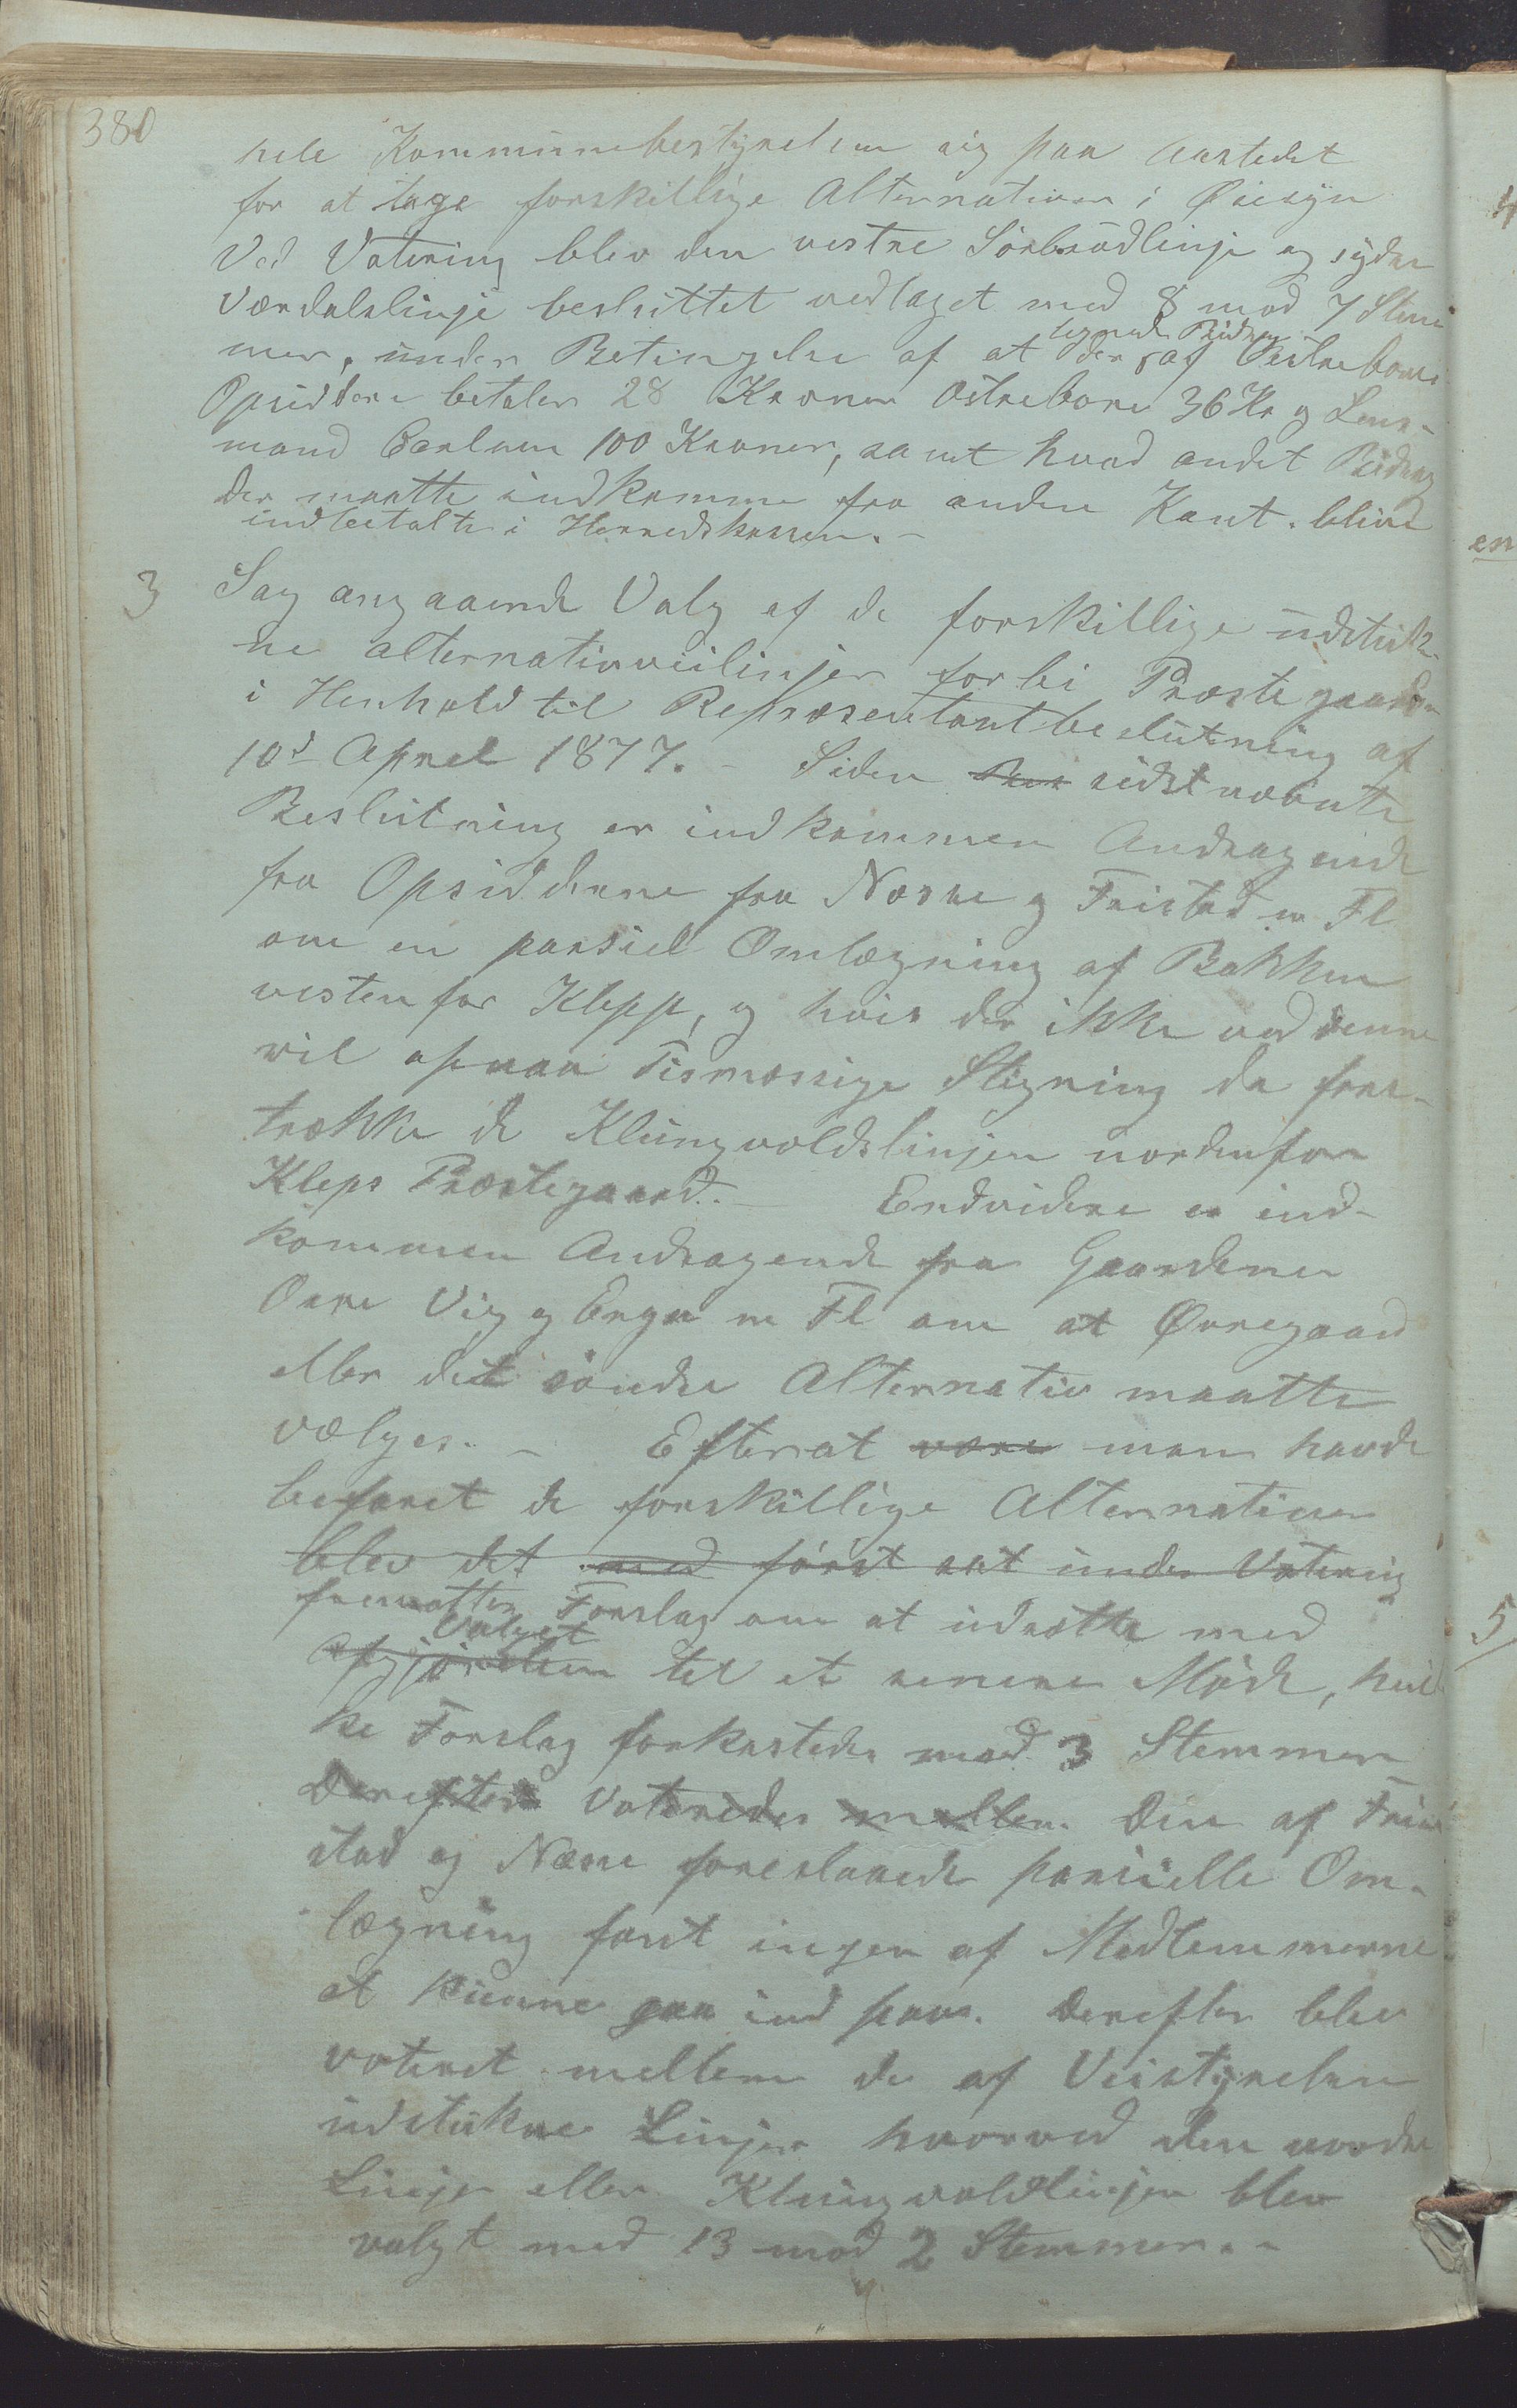 380
hele Kommunebestyrelsen sig paa Aastedet
for at tage forskillige Alternativer i Øiesyn
Ved Votering blev den vestre Sörbrödlinje og sydre
Værdalslinje besluttet vedtaget med 8 mod 7 Stem
mer, under Betingelse af at der tegnede Bidrag af Vestrebore
Opsiddere betaler 28 Kroner Østrebore 36 Kr og Lens-
mand Carlsen 100 Kroner, samt hvad andet Bidrag
der maatte indkomme fra anden Kant. blive
indbetalte i Herredskassen. -
3 Sag angaaende Valg af de forskillige udstuk-
ne alternativveilinjer forbi Præstegaarden
i Henhold til Repræsentantbeslutning af
10d April 1877. - Siden sidstnævnte
Beslutning er indkommen Andragende
fra Opsidderne fra Næsse og Friestad m Fl
om en parsiel Omlægning af Bakken
vestenfor Klepp, og hvis der ikke ved denne
vil opnaa Tismæssige Stigning da fore-
trække de Klungvoldslinjen nordenfor
Kleps Præstegaard. - Endvidere er ind-
kommen Andragende fra Gaardene
Orre Vig og Erga m Fl om at Øvregaard
eller det söndre Alternativ maatte
vælges. - Efterat være man havde
befaret de forskillige Alternativer
blev det med först sat under Votering
fremsattes Forslag om at udsætte med
Valget
Afgjörelsen til et senere Möde, hvil
ke Forslag forkastedes mod 3 Stemmer
Derefter Voteredes mellem Den af Frie
stad og Næsse foreslaaede parsielle Om-
lægning fant ingen af Medlemmerne
at kunne gaa ind paa. Derefter blev
voteret mellem de af Veistyrelsen
udstukne Linjer hvorved den nordre
Linje eller Klungvoldlinjen blev
valgt med 13 mod 2 Stemmer. -
4
en
5